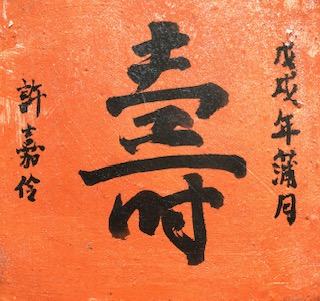 戊戌年蒲月
壽
許嘉伶